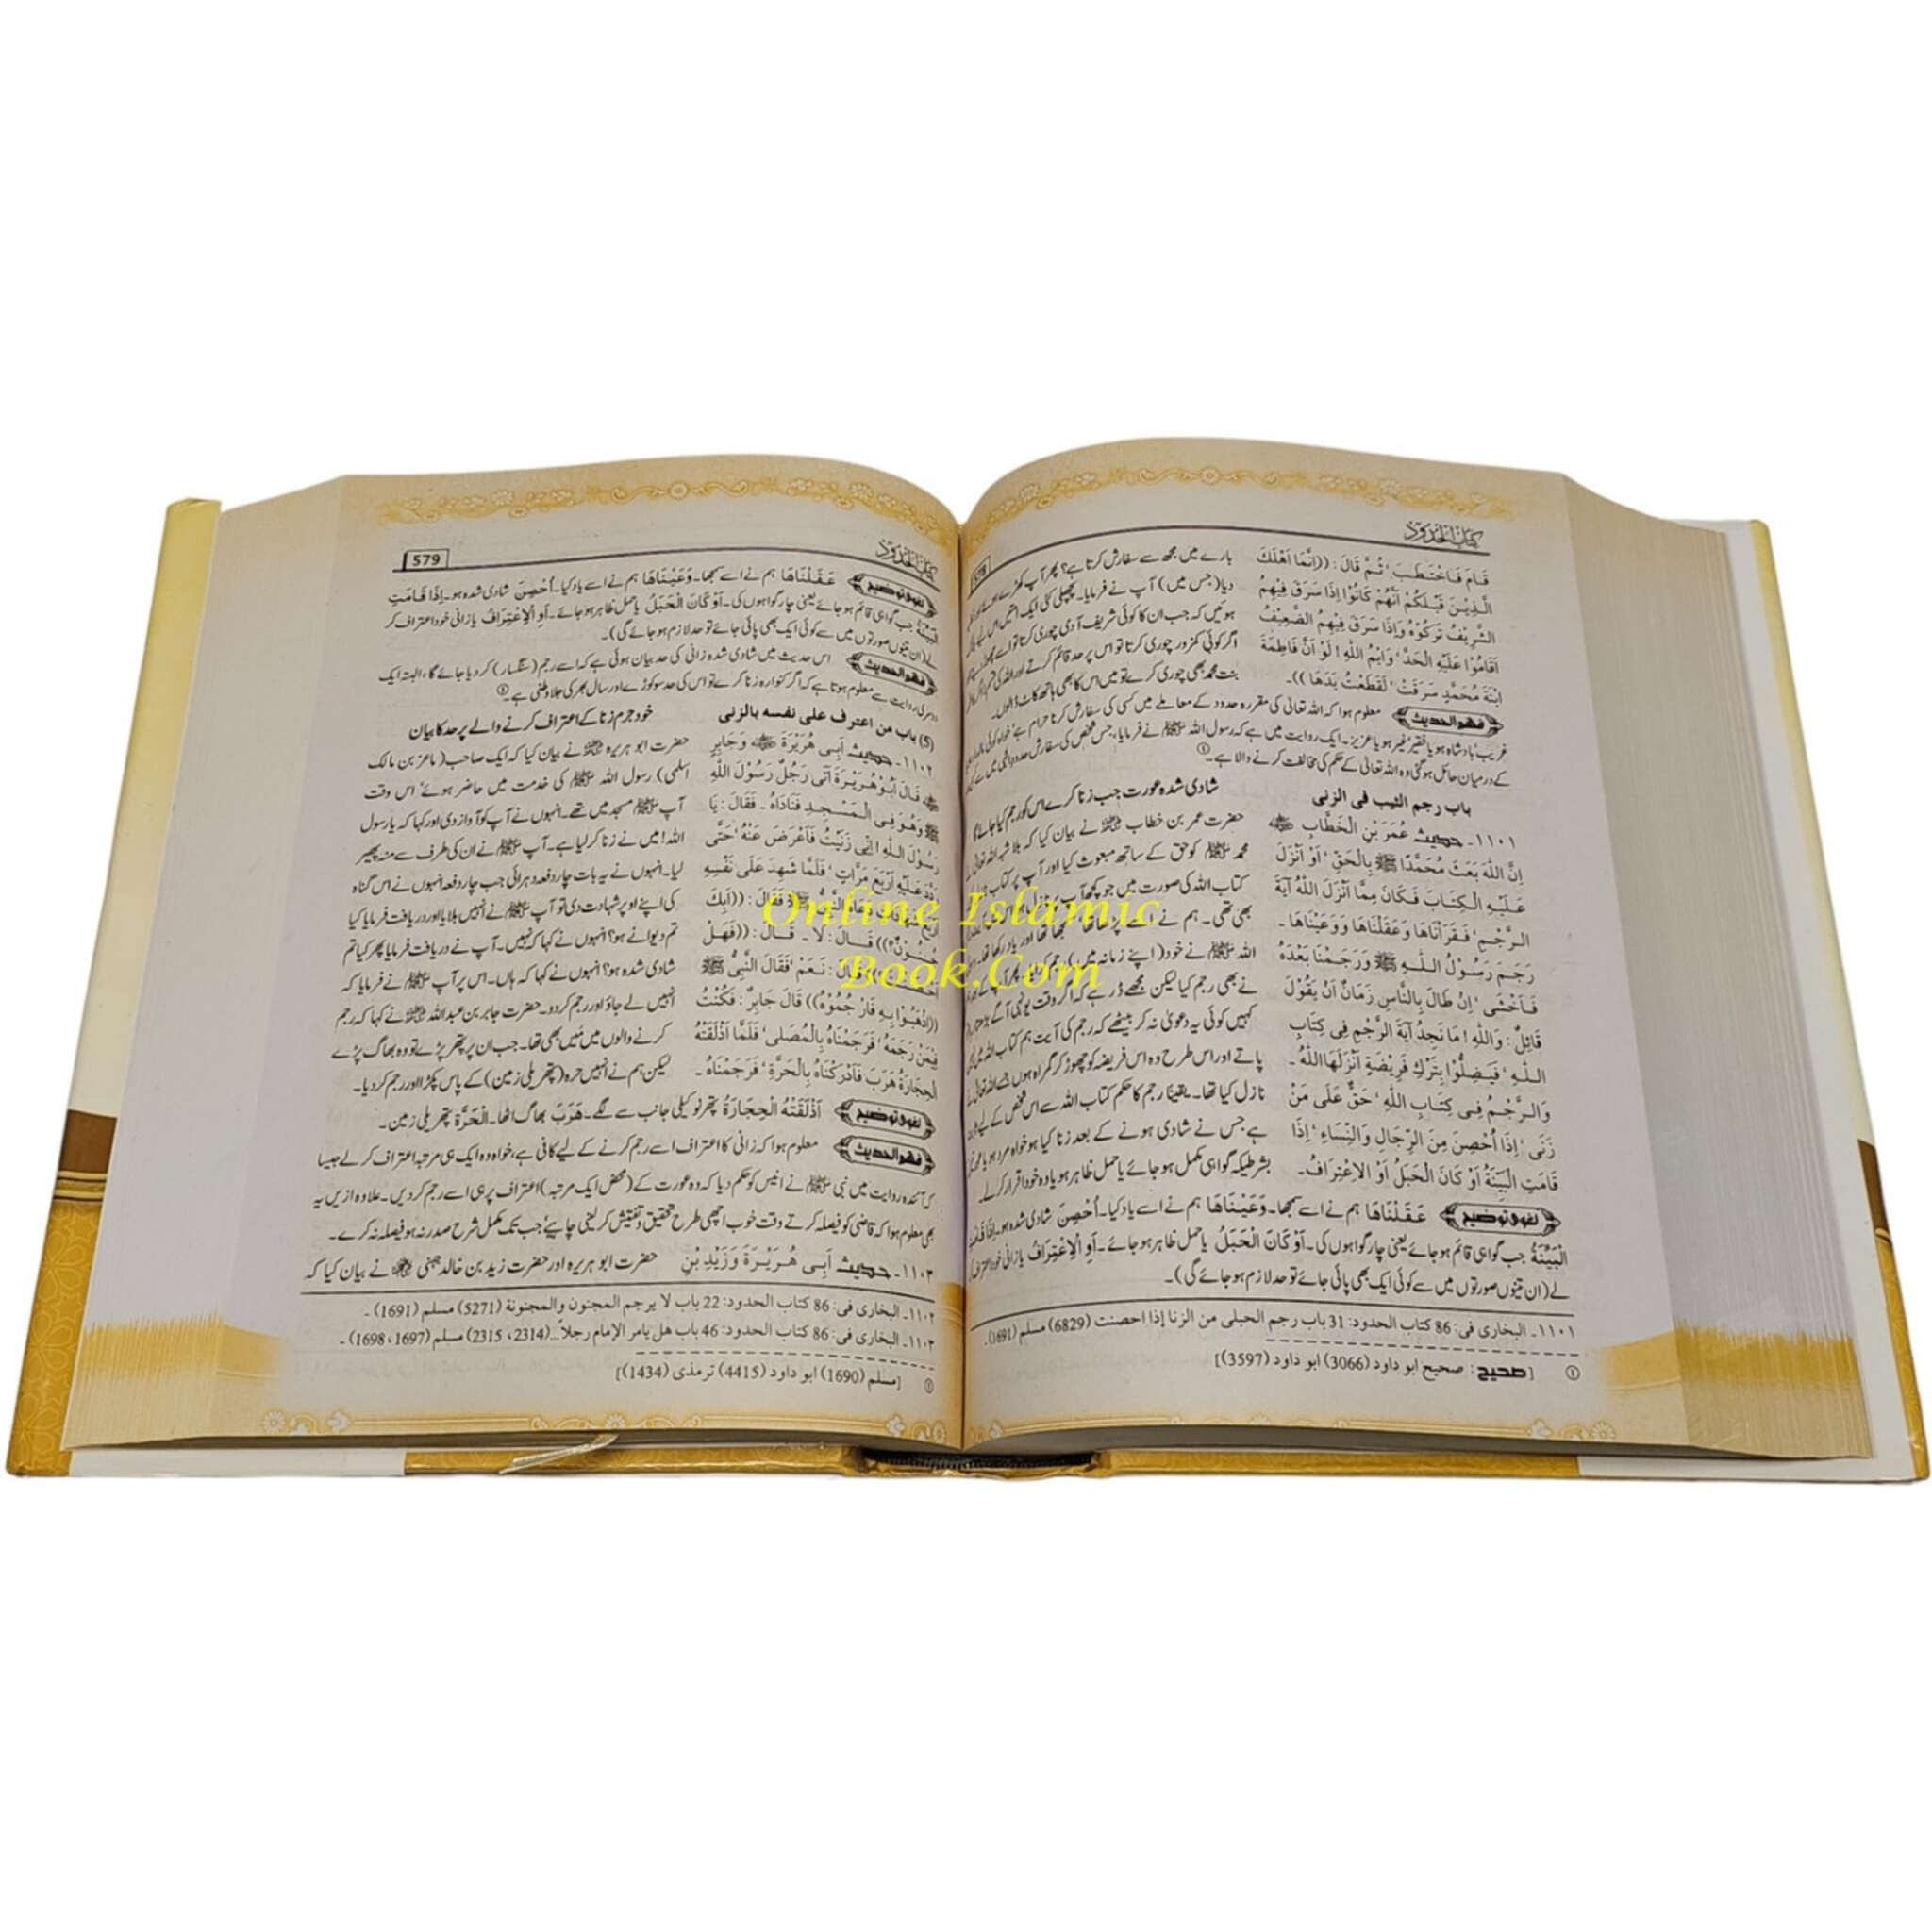 كتاب الحدود
قَامَ فَاخْتَطَبَ، ثُمَّ قَالَ: ((إِنَّمَا أَهْلَكَ
الَّذِيْنَ قَبْلَكُمْ أَنَّهُمْ كَانُوْا إِذَا سَرَقَ فِيْهِمُ
الشَّرِيْفُ تَرَكُوْهُ وَإِذَا سَرَقَ فِيْهِمُ الضَّعِيْفُ
أَقَامُوْا عَلَيْهِ الْحَدَّ، وَايْمُ اللّٰهِ! لَوْ أَنَّ فَاطِمَةَ
ابْنَةَ مُحَمَّدٍ سَرَقَتْ، لَقَطَعْتُ يَدَهَا))۔
بارے میں مجھ سے سفارش کرتا ہے؟ پھر آپ کھڑے ہوئے
دیا (جس میں) آپ نے فرمایا۔ پچھلی کئی ایک امتیں اس لیے
ہوئیں کہ جب ان کا کوئی شریف آدمی چوری کرتا تو اسے چھوڑ
اگر کوئی کمزور چوری کرتا تو اس پر حد قائم کرتے اور اللہ کی قسم
بنت محمد بھی چوری کرے تو میں اس کا بھی ہاتھ کاٹ ڈالوں۔
فهم الحديث معلوم ہوا کہ اللہ تعالیٰ کی مقررہ حدود کے معاملے میں کسی کی سفارش کرنا حرام ہے، خواہ کوئی
غریب، بادشاہ ہو یا فقیر، غیر ہو یا عزیز۔ ایک روایت میں ہے کہ رسول اللہ ﷺ نے فرمایا، جس شخص کی سفارش حدود الٰہی میں سے
کے درمیان حائل ہو گئی وہ اللہ تعالیٰ کے حکم کی مخالفت کرنے والا ہے۔①
باب رجم الثيب في الزنى
شادی شدہ عورت جب زنا کرے اس کو رجم کیا جائے گا
۱۱۰۱۔ حديث عُمَرَ بْنِ الْخَطَّابِ
إِنَّ اللّٰهَ بَعَثَ مُحَمَّدًا ﷺ بِالْحَقِّ، أَوْ أَنْزَلَ
عَلَيْهِ الْكِتَابَ فَكَانَ مِمَّا أَنْزَلَ اللّٰهُ آيَةَ
الرَّجْمِ، فَقَرَأْنَاهَا وَعَقَلْنَاهَا وَوَعَيْنَاهَا۔
رَجَمَ رَسُوْلُ اللّٰهِ ﷺ وَرَجَمْنَا بَعْدَهُ
فَأَخْشَى، إِنْ طَالَ بِالنَّاسِ زَمَانٌ أَنْ يَقُوْلَ
قَائِلٌ: وَاللّٰهِ! مَا نَجِدُ آيَةَ الرَّجْمِ فِى كِتَابِ
اللّٰهِ، فَيَضِلُّوْا بِتَرْكِ فَرِيْضَةٍ أَنْزَلَهَا اللّٰهُ۔
وَالرَّجْمُ فِى كِتَابِ اللّٰهِ، حَقٌّ عَلَى مَنْ
زَنَى، إِذَا أُحْصِنَ مِنَ الرِّجَالِ وَالنِّسَاءِ، إِذَا
قَامَتِ الْبَيِّنَةُ أَوْ كَانَ الْحَبَلُ أَوْ الْاِعْتِرَافُ۔
حضرت عمر بن خطاب نے بیان کیا کہ بلا شبہ اللہ تعالیٰ
محمد ﷺ کو حق کے ساتھ مبعوث کیا اور آپ پر کتاب
کتاب اللہ کی صورت میں جو کچھ آپ پر نازل ہوا
بھی تھی۔ ہم نے اسے پڑھا تھا سمجھا تھا اور یاد رکھا تھا۔
اللہ ﷺ نے خود (اپنے زمانہ میں) رجم کیا پھر آپ کے بعد
نے بھی رجم کیا لیکن مجھے ڈر ہے کہ اگر وقت یونہی آگے بڑھتا رہا
کہیں کوئی یہ دعویٰ نہ کر بیٹھے کہ رجم کی آیت ہم کتاب اللہ میں
پاتے اور اس طرح وہ اس فریضہ کو چھوڑ کر گمراہ ہوں جسے اللہ تعالیٰ نے
نازل کیا تھا۔ یقیناً رجم کا حکم کتاب اللہ سے اس شخص کے لیے
ہے جس نے شادی ہونے کے بعد زنا کیا ہو خواہ مرد ہو یا
بشرطیکہ گواہی مکمل ہو جائے یا حمل ظاہر ہو یا وہ خود اقرار کر لے۔
لغوى توضيح عَقَلْنَاهَا ہم نے اسے سمجھا۔ وَعَيْنَاهَا ہم نے اسے یاد کیا۔ أُحْصِنَ شادی شدہ ہو۔ إِذَا قَامَتِ
الْبَيِّنَةُ جب گواہی قائم ہو جائے یعنی چار گواہوں کی۔ أَوْ كَانَ الْحَبَلُ یا حمل ظاہر ہو جائے۔ أَوِ الْاِعْتِرَافُ یا زانی خود اعتراف
لے (ان تینوں صورتوں میں سے کوئی ایک بھی پائی جائے تو حد لازم ہو جائے گی)۔
۱۱۰۱۔ البخارى فى: 86 كتاب الحدود: 31 باب رجم الحبلى من الزنا إذا احصنت (6829) مسلم (1691)۔
① [صحيح: صحيح ابو داود (3066) ابو داود (3597)]
كتاب الحدود
579
لغوى توضيح عَقَلْنَاهَا ہم نے اسے سمجھا۔ وَعَيْنَاهَا ہم نے اسے یاد کیا۔ أُحْصِنَ شادی شدہ ہو۔ إِذَا قَامَتِ
الْبَيِّنَةُ جب گواہی قائم ہو جائے یعنی چار گواہوں کی۔ أَوْ كَانَ الْحَبَلُ یا حمل ظاہر ہو جائے۔ أَوِ الْاِعْتِرَافُ یا زانی خود اعتراف کر
لے (ان تینوں صورتوں میں سے کوئی ایک بھی پائی جائے تو حد لازم ہو جائے گی)۔
فهم الحديث اس حدیث میں شادی شدہ زانی کی حد بیان ہوئی ہے کہ اسے رجم (سنگسار) کر دیا جائے گا، البتہ ایک
دوسری روایت سے معلوم ہوتا ہے کہ اگر کنوارہ زنا کرے تو اس کی حد سو کوڑے اور سال بھر کی جلا وطنی ہے۔①
(5) باب من اعترف على نفسه بالزنى
خود جرم زنا کے اعتراف کرنے والے پر حد کا بیان
۱۱۰۲۔ حديث أَبِى هُرَيْرَةَ وَجَابِرٍ
قَالَ أَبُوْ هُرَيْرَةَ أَتَى رَجُلٌ رَسُوْلَ اللّٰهِ
ﷺ وَهُوَ فِى الْمَسْجِدِ فَنَادَاهُ۔ فَقَالَ: يَا
رَسُوْلَ اللّٰهِ! إِنِّى زَنَيْتُ فَأَعْرَضَ عَنْهُ، حَتَّى
رَدَّدَ عَلَيْهِ أَرْبَعَ مَرَّاتٍ، فَلَمَّا شَهِدَ عَلَى نَفْسِهِ
أَرْبَعَ شَهَادَاتٍ دَعَاهُ النَّبِىُّ ﷺ فَقَالَ: ((أَبِكَ
جُنُوْنٌ؟)) قَالَ: لَا۔ قَالَ: ((فَهَلْ
أَحْصَنْتَ؟)) قَالَ: نَعَمْ، فَقَالَ النَّبِىُّ ﷺ
((اذْهَبُوْا بِهِ فَارْجُمُوْهُ)) قَالَ جَابِرٌ: فَكُنْتُ
فِيْمَنْ رَجَمَهُ، فَرَجَمْنَاهُ بِالْمُصَلَّى، فَلَمَّا أَذْلَقَتْهُ
الْحِجَارَةُ هَرَبَ فَأَدْرَكْنَاهُ بِالْحَرَّةِ، فَرَجَمْنَاهُ۔
حضرت ابو ہریرہ نے بیان کیا کہ ایک صاحب (ماعز بن مالک
اسلمی) رسول اللہ ﷺ کی خدمت میں حاضر ہوئے، اس وقت
آپ ﷺ مسجد میں تھے۔ انہوں نے آپ کو آواز دی اور کہا کہ یا رسول
اللہ! میں نے زنا کر لیا ہے۔ آپ ﷺ نے ان کی طرف سے منہ پھیر
لیا۔ انہوں نے یہ بات چار دفعہ دہرائی جب چار دفعہ انہوں نے اس گناہ
کی اپنے اوپر شہادت دی تو آپ ﷺ نے انہیں بلایا اور دریافت فرمایا کیا
تم دیوانے ہو؟ انہوں نے کہا کہ نہیں۔ آپ نے دریافت فرمایا پھر کیا تم
شادی شدہ ہو؟ انہوں نے کہا کہ ہاں۔ اس پر آپ ﷺ نے فرمایا کہ
انہیں لے جاؤ اور رجم کر دو۔ حضرت جابر بن عبداللہ نے کہا کہ رجم
کرنے والوں میں میں بھی تھا۔ جب ان پر پتھر پڑے تو وہ بھاگ پڑے
لیکن ہم نے انہیں حرہ (پتھریلی زمین) کے پاس پکڑا اور رجم کر دیا۔
لغوى توضيح أَذْلَقَتْهُ الْحِجَارَةُ پتھر نوکیلی جانب سے لگے۔ هَرَبَ بھاگ اٹھا۔ الْحَرَّة پتھریلی زمین۔
فهم الحديث معلوم ہوا کہ زانی کا اعتراف اسے رجم کرنے کے لیے کافی ہے، خواہ وہ ایک ہی مرتبہ اعتراف کر لے جیسا
کہ آئندہ روایت میں نبی ﷺ نے انیس کو حکم دیا کہ وہ عورت کے (محض ایک مرتبہ) اعتراف پر ہی اسے رجم کر دیں۔ علاوہ ازیں یہ
بھی معلوم ہوا کہ قاضی کو فیصلہ کرتے وقت خوب اچھی طرح تحقیق و تفتیش کر لینی چاہیے، جب تک مکمل شرح صدر نہ ہو فیصلہ نہ کرے۔
۱۱۰۳۔ حديث أَبِى هُرَيْرَةَ وَزَيْدِ بْنِ
حضرت ابو ہریرہ اور حضرت زید بن خالد جہنی نے بیان کیا کہ
۱۱۰۲۔ البخارى فى: 86 كتاب الحدود: 22 باب لا يرجم المجنون والمجنونة (5271) مسلم (1691)۔
۱۱۰۳۔ البخارى فى: 86 كتاب الحدود: 46 باب هل يامر الإمام رجلاً... (2314، 2315) مسلم (1697، 1698)۔
① [مسلم (1690) ابو داود (4415) ترمذى (1434)]
Online Islamic
Book.Com